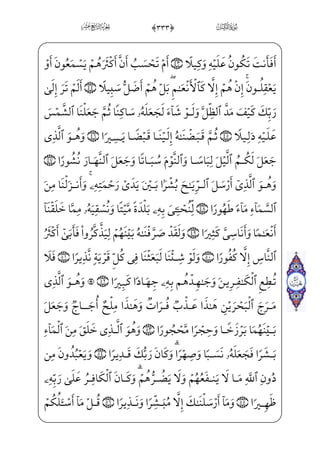 ﴿٣٣٣﴾
أَفَأَنتَ تَكُونُ عَلَيْهِ وَكِيلًا ۝ أَمْ تَحْسَبُ أَنَّ أَكْثَرَهُمْ يَسْمَعُونَ أَوْ
يَعْقِلُونَ ۚ إِنْ هُمْ إِلَّا كَالْأَنْعَٰمِ ۖ بَلْ هُمْ أَضَلُّ سَبِيلًا ۝ أَلَمْ تَرَ إِلَىٰ
رَبِّكَ كَيْفَ مَدَّ الظِّلَّ وَلَوْ شَآءَ لَجَعَلَهُۥ سَاكِنًا ثُمَّ جَعَلْنَا الشَّمْسَ
عَلَيْهِ دَلِيلًا ۝ ثُمَّ قَبَضْنَٰهُ إِلَيْنَا قَبْضًا يَسِيرًا ۝ وَهُوَ الَّذِى
جَعَلَ لَكُمُ الَّيْلَ لِبَاسًا وَالنَّوْمَ سُبَاتًا وَجَعَلَ النَّهَارَ نُشُورًا ۝
وَهُوَ الَّذِىٓ أَرْسَلَ الرِّيَٰحَ بُشْرًۢا بَيْنَ يَدَىْ رَحْمَتِهِۦ ۚ وَأَنزَلْنَا مِنَ
السَّمَآءِ مَآءً طَهُورًا ۝ لِّنُحْـِۧىَ بِهِۦ بَلْدَةً مَّيْتًا وَنُسْقِيَهُۥ مِمَّا خَلَقْنَآ
أَنْعَٰمًا وَأَنَاسِىَّ كَثِيرًا ۝ وَلَقَدْ صَرَّفْنَٰهُ بَيْنَهُمْ لِيَذَّكَّرُوا۟ فَأَبَىٰٓ أَكْثَرُ
النَّاسِ إِلَّا كُفُورًا ۝ وَلَوْ شِئْنَا لَبَعَثْنَا فِى كُلِّ قَرْيَةٍ نَّذِيرًا ۝ فَلَا
تُطِعِ الْكَٰفِرِينَ وَجَٰهِدْهُم بِهِۦ جِهَادًا كَبِيرًا ۝ ۞ وَهُوَ الَّذِى
مَرَجَ الْبَحْرَيْنِ هَٰذَا عَذْبٌ فُرَاتٌ وَهَٰذَا مِلْحٌ أُجَاجٌ وَجَعَلَ
بَيْنَهُمَا بَرْزَخًا وَحِجْرًا مَّحْجُورًا ۝ وَهُوَ الَّذِى خَلَقَ مِنَ الْمَآءِ
بَشَرًا فَجَعَلَهُۥ نَسَبًا وَصِهْرًا ۗ وَكَانَ رَبُّكَ قَدِيرًا ۝ وَيَعْبُدُونَ مِن
دُونِ اللَّهِ مَا لَا يَنفَعُهُمْ وَلَا يَضُرُّهُمْ ۗ وَكَانَ الْكَافِرُ عَلَىٰ رَبِّهِۦ
ظَهِيرًا ۝ وَمَآ أَرْسَلْنَٰكَ إِلَّا مُبَشِّرًا وَنَذِيرًا ۝ قُلْ مَآ أَسْـَٔلُكُمْ